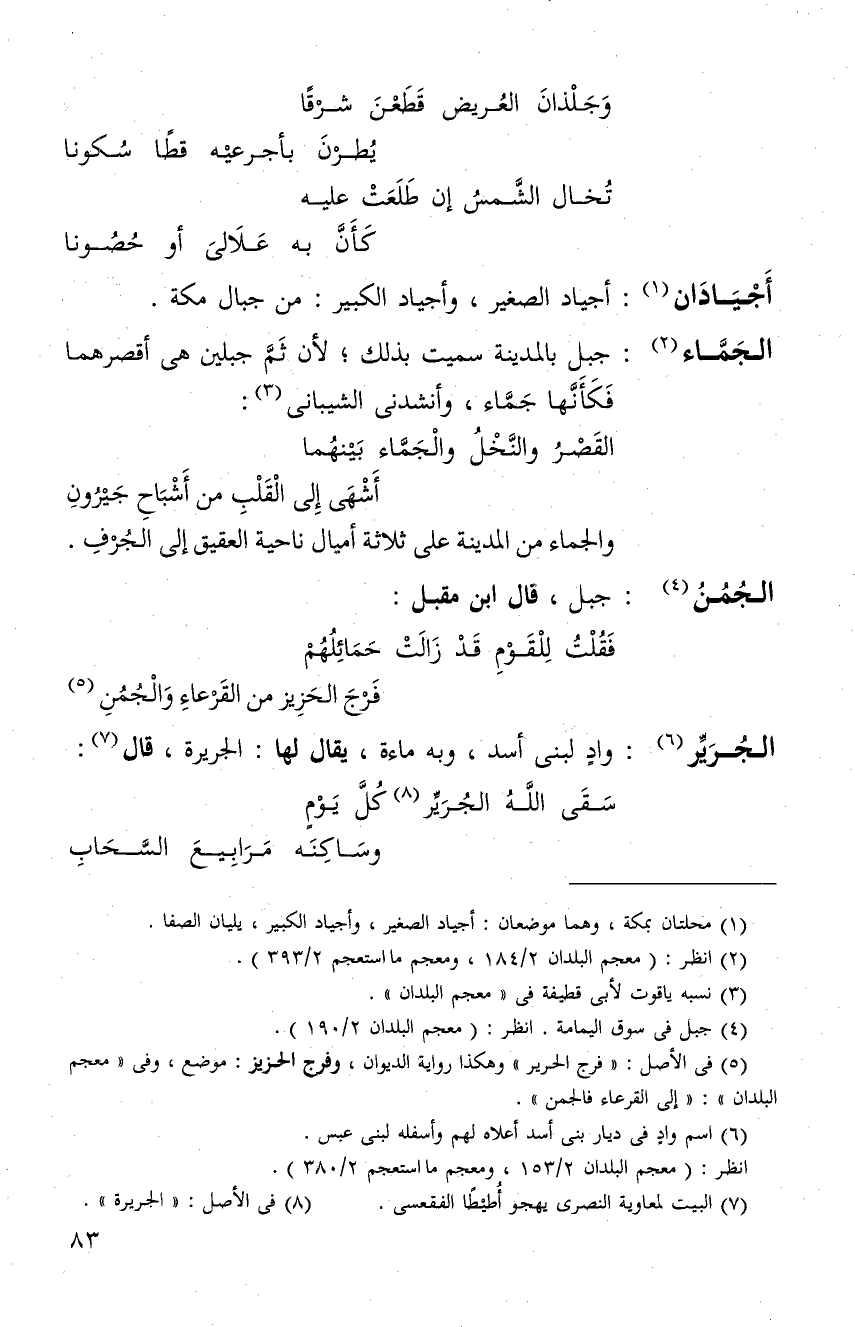 وَجَلْذانَ العُـريض قَطَعْنَ شـرْقًا
يُطـرْنَ بأجـرعيْه قطًا سُكونا
تُخـال الشَّـمسُ إن طَلَعَتْ عليـه
كَأَنَّ بـه عَـلَالىَ أو حُصُـونا
أَجْـيَـادَان (١) : أجياد الصغير ، وأجياد الكبير : من جبال مكة .
الـجَمَّـاء (٢) : جبل بالمدينة سميت بذلك ؛ لأن ثَمَّ جبلين هى أقصرهما
فَكَأَنَّها جَمَّاء ، وأنشدنى الشيبانى (٣) :
القَصْرُ والنَّخْلُ والْجَمَّاء بَيْنهُما
أَشْهَى إِلى الْقَلْبِ من أَشْبَاحِ جَيْرُونِ
والجماء من المدينة على ثلاثة أميال ناحية العقيق إلى الـجُرْفِ .
الـجُمُـنُ (٤) : جبل ، قال ابن مقبـل :
فَقُلْتُ لِلْقَـوْمِ قَـدْ زَالَتْ حَمَائِلُهُمْ
فَرْجَ الـحَزِيز من القَرْعاءِ وَالْجُمُنِ (٥)
الـجُـرَيِّر (٦) : وادٍ لبنى أسد ، وبه ماءة ، يقال لها : الجريرة ، قال (٧) :
سَـقَى اللَّـهُ الـجُـرَيِّر (٨) كُلَّ يَـوْمٍ
وسَـاكِنَـه مَـرَابِيـعَ السَّـحَابِ
(١) محلتان بمكة ، وهما موضعان : أجياد الصغير ، وأجياد الكبير ، يليان الصفا .
(٢) انظر : ( معجم البلدان ١٨٤/٢ ، ومعجم ما استعجم ٣٩٣/٢ ) .
(٣) نسبه ياقوت لأبى قطيفة فى « معجم البلدان » .
(٤) جبل فى سوق اليمامة . انظر : ( معجم البلدان ١٩٠/٢ ) .
(٥) فى الأصل : « فرج الحرير » وهكذا رواية الديوان ، وفرج الحـزيز : موضع ، وفى « معجم
البلدان » : « إلى القرعاء فالجمن » .
(٦) اسم وادٍ فى ديار بنى أسد أعلاه لهم وأسفله لبنى عبس .
انظر : ( معجم البلدان ١٥٣/٢ ، ومعجم ما استعجم ٣٨٠/٢ ) .
(٧) البيت لمعاوية النصرى يهجو أُطيْطًا الفقعسى . (٨) فى الأصل : « الجريرة » .
٨٣